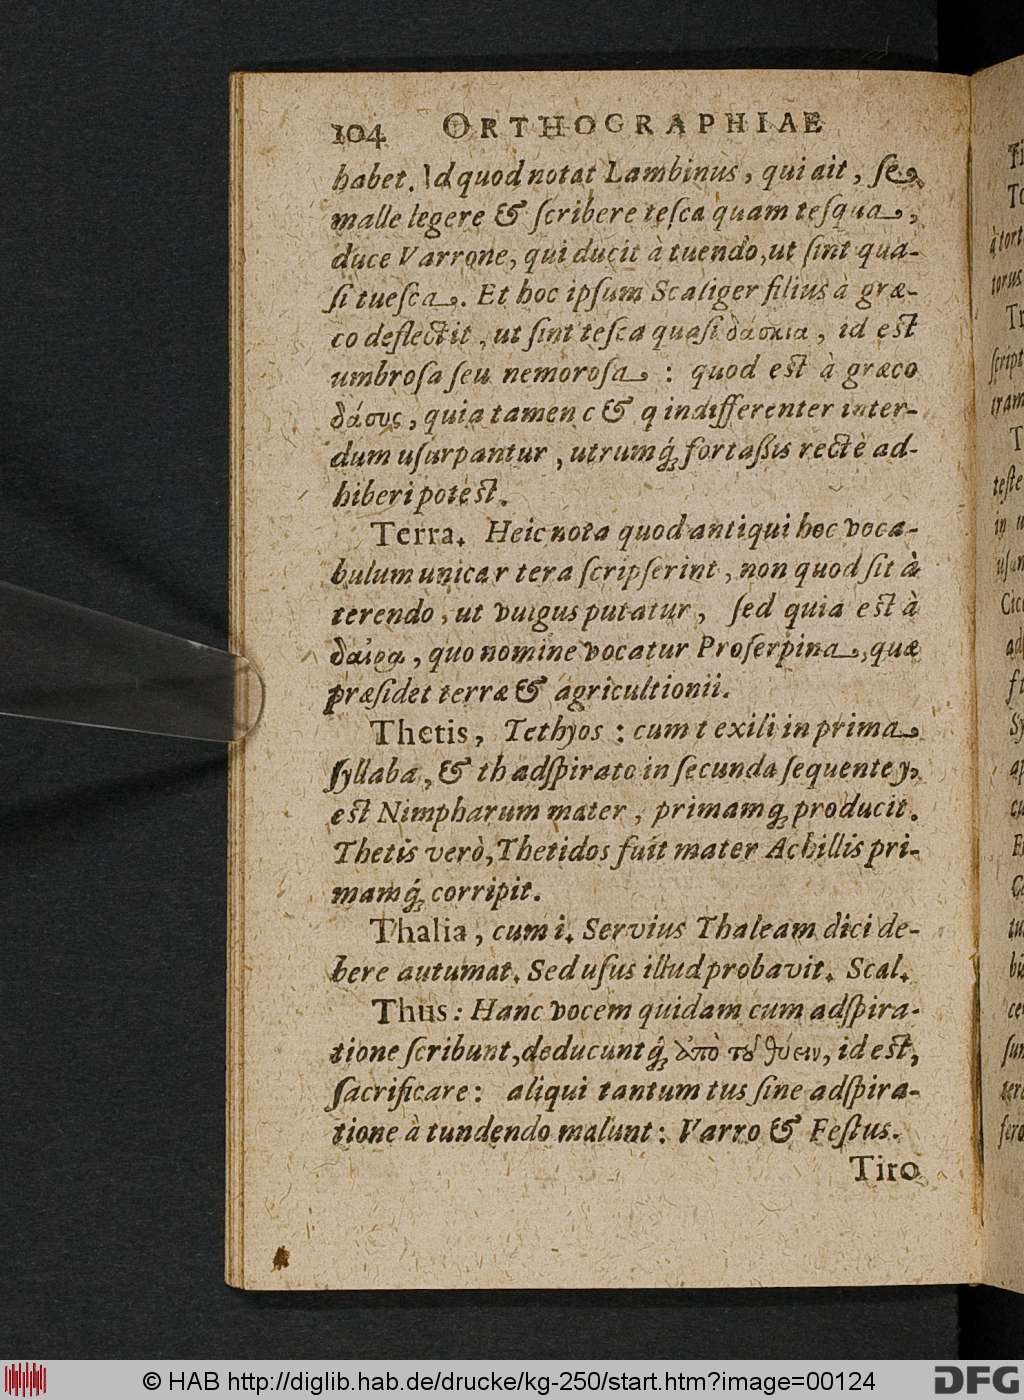 104 ORTHOGRAPHIAE
habet. Id quod notat Lambinus, qui ait, ſe
malle legere & ſcribere teſca quam teſqua,
duce Varrone, qui ducit à tuendo, ut ſint qua-
ſi tueſca. Et hoc ipſum Scaliger filius à græ-
co deflectit, ut ſint teſca quaſi δάσκια, id eſt
umbroſa ſeu nemoroſa: quod eſt à græco
δάσυς, quia tamen c & q indifferenter inter-
dum uſurpantur, utrumq́; fortaßis rectè ad-
hiberi poteſt.
Terra. Heic nota quod antiqui hoc voca-
bulum unica r tera ſcripſerint, non quod ſit à
terendo, ut vulgus putatur, ſed quia eſt à
δαίρα, quo nomine vocatur Proſerpina, quæ
præſidet terræ & agricultionii.
Thetis, Tethyos: cum t exili in prima
ſyllaba, & th adſpirato in ſecunda ſequente y,
eſt Nimpharum mater, primamq; producit.
Thetis verò, Thetidos fuit mater Achillis pri-
mamq́; corripit.
Thalia, cum i. Servius Thaleam dici de-
bere autumat. Sed uſus illud probavit. Scal.
Thus: Hanc vocem quidam cum adſpira-
tione ſcribunt, deducuntq́; ἀπὸ τοῦ θύειν, id eſt,
ſacrificare: aliqui tantum tus ſine adſpira-
tione à tundendo malunt: Varro & Feſtus.
Tiro
© HAB http://diglib.hab.de/drucke/kg-250/start.htm?image=00124
DFG